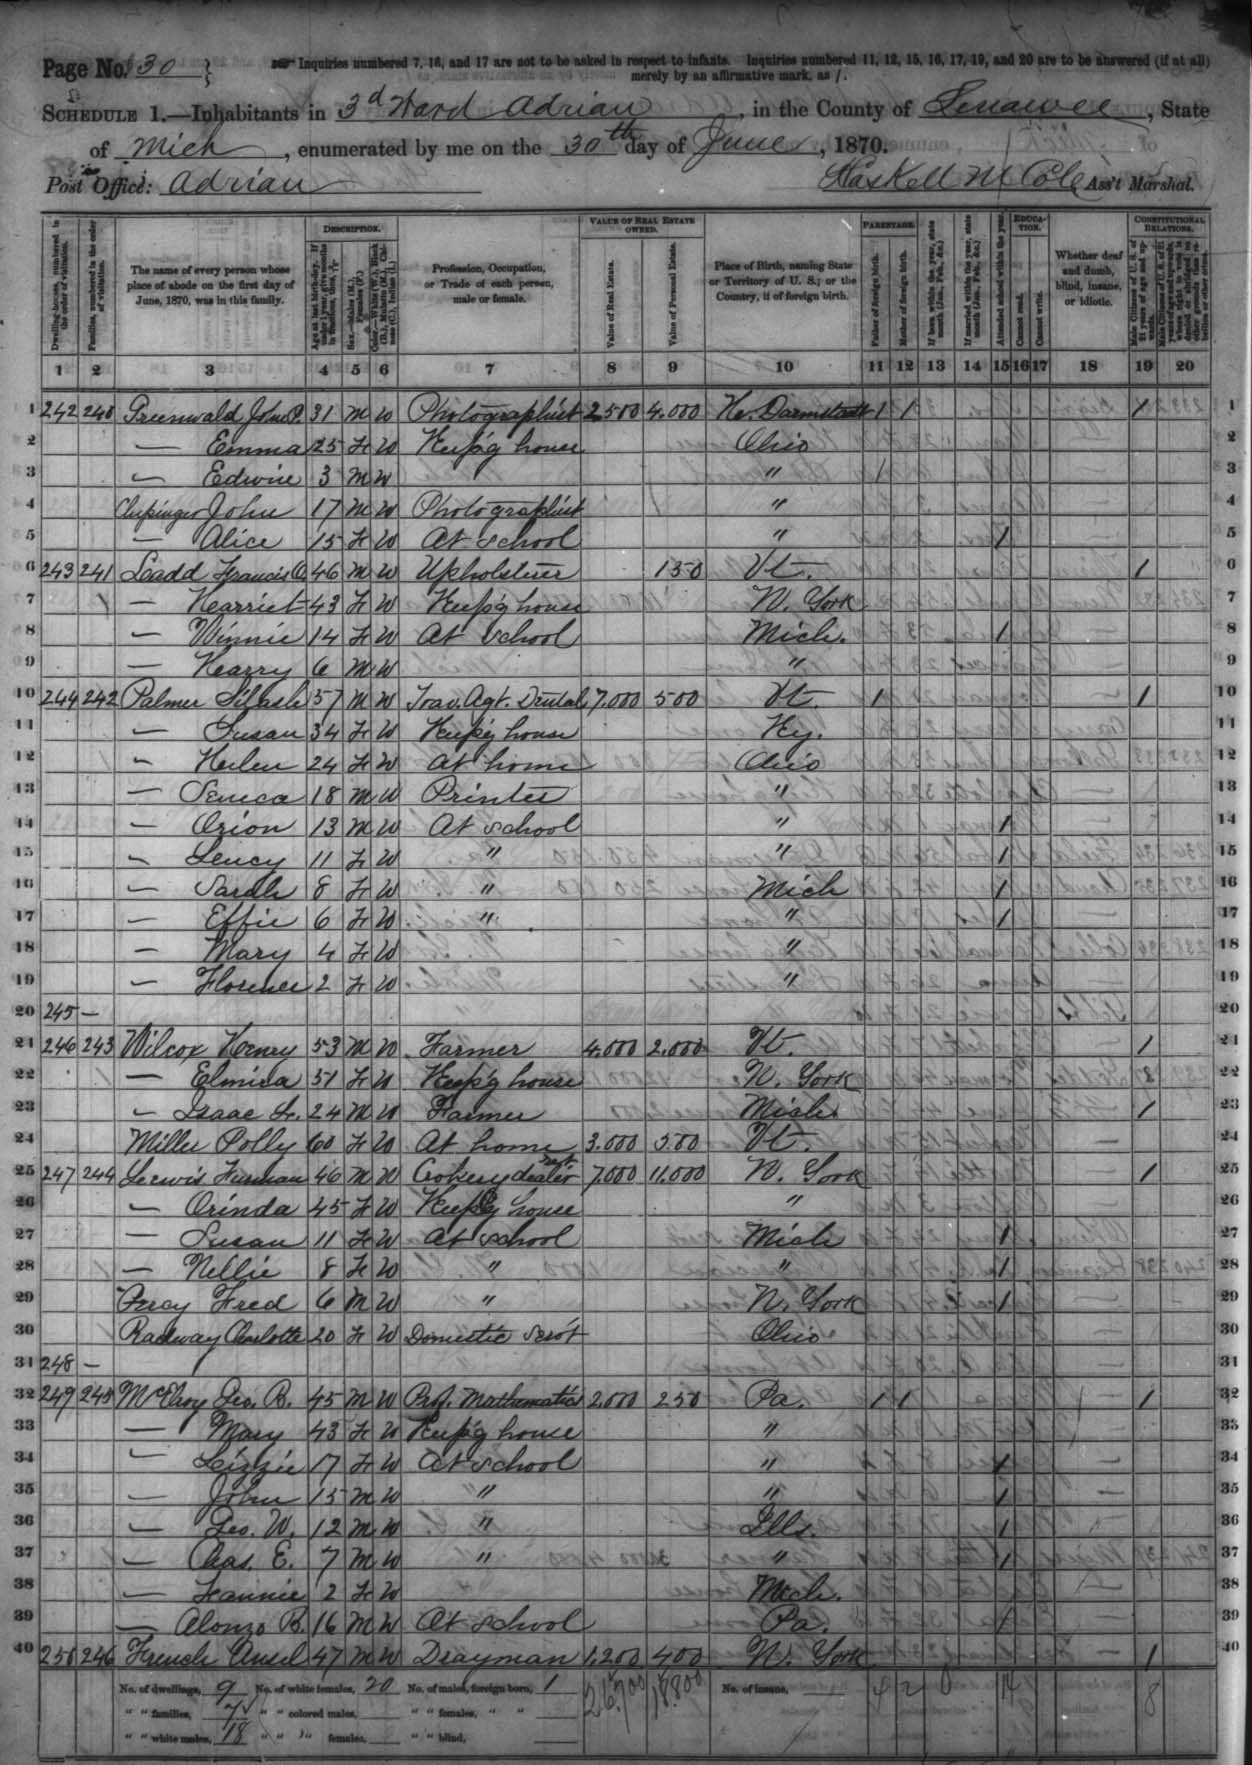 Page No. 30 } Inquiries numbered 7, 16, and 17 are not to be asked in respect to infants. Inquiries numbered 11, 12, 15, 16, 17, 19, and 20 are to be answered (if at all)
merely by an affirmative mark, as /.
SCHEDULE 1.—Inhabitants in 3d Ward Adrian, in the County of Lenawee, State
of Mich, enumerated by me on the 30th day of June, 1870.
Post Office: Adrian Haskell M Cole Ass't Marshal.
Dwelling-houses, numbered in the order of visitation.
Families, numbered in the order of visitation.
The name of every person whose place of abode on the first day of June, 1870, was in this family.
DESCRIPTION.
Age at last birthday. If under 1 year, give months in fractions, thus, 3/12
Sex.—Males (M.), Females (F.)
Color.—White (W.), Black (B.), Mulatto (M.), Chinese (C.), Indian (I.)
Profession, Occupation, or Trade of each person, male or female.
VALUE OF REAL ESTATE OWNED.
Value of Real Estate.
Value of Personal Estate.
Place of Birth, naming State or Territory of U. S.; or the Country, if of foreign birth.
PARENTAGE.
Father of foreign birth.
Mother of foreign birth.
If born within the year, state month (Jan., Feb., &c.)
If married within the year, state month (Jan., Feb., &c.)
Attended school within the year.
EDUCATION.
Cannot read.
Cannot write.
Whether deaf and dumb, blind, insane, or idiotic.
CONSTITUTIONAL RELATIONS.
Male Citizens of U. S. of 21 years of age and upwards.
Male Citizens of U. S. of 21 years of age and upwards, whose right to vote is denied or abridged on other grounds than rebellion or other crime.
1 2 3 4 5 6 7 8 9 10 11 12 13 14 15 16 17 18 19 20
1 242 240 Greenwald John P. 31 M W Photographist 2,500 4,000 He. Darmstadt 1 1 1 1
2 — Emma 25 F W Keep'g house Ohio 2
3 — Edwin 3 M W " 1 3
4 John 17 M W Photographist " 4
5 — Alice 15 F W At school " 1 5
6 243 241 Ladd Francis C. 46 M W Upholsterer 150 Vt. 1 6
7 — Harriet 43 F W Keep'g house N. York 7
8 — Winnie 14 F W At school Mich. 1 8
9 — Harry 6 M W " 9
10 244 242 Palmer 57 M W Trav. Agt. Dental 7,000 500 Vt. 1 1 10
11 — Susan 34 F W Keep'g house Ky. 11
12 — Helen 24 F W At home Ohio 12
13 — Seneca 18 M W Printer " 13
14 — Orion 13 M W At school " 1 14
15 — Lucy 11 F W " " 1 15
16 — Sarah 8 F W " Mich 1 16
17 — Effie 6 F W " " 1 17
18 — Mary 4 F W " 18
19 — Florence 2 F W " 19
20 245 — 20
21 246 243 Wilcox Henry 53 M W Farmer 4,000 2,000 Vt. 1 21
22 — Elmira 51 F W Keep'g house N. York 22
23 — Isaac L. 24 M W Farmer Mich 1 23
24 Miller Polly 60 F W At home 3,000 500 Vt. 24
25 247 244 Lewis Furman 46 M W Crokery dealer 7,000 11,000 N. York 1 25
26 — Orinda 45 F W Keep'g house " 26
27 — Susan 11 F W At school Mich 1 27
28 — Nellie 8 F W " " 1 28
29 Percy Fred 6 M W " N. York 1 29
30 Radway Charlotte 20 F W Domestic Serv't Ohio 30
31 248 — 31
32 249 245 McElroy Geo. B. 45 M W Prof. Mathematics 2,000 250 Pa. 1 1 1 32
33 — Mary 43 F W Keep'g house " 33
34 — Lizzie 17 F W At school " 1 34
35 — John 15 M W " " 1 35
36 — Geo. W. 12 M W " Ills. 1 36
37 — Chas. E. 7 M W " " 1 37
38 — Fannie 2 F W Mich. 38
39 — Alonzo B. 16 M W At school Pa. 1 39
40 250 246 French Ansel 47 M W Drayman 1,200 400 N. York 1 40
No. of dwellings, 9 No. of white females, 20 No. of males, foreign born, 1 26,700 18,800 No. of insane, 4 2 0 14 8
" " families, 7 " " colored males, " " females, " "
" " white males, 18 " " " females, " " blind,